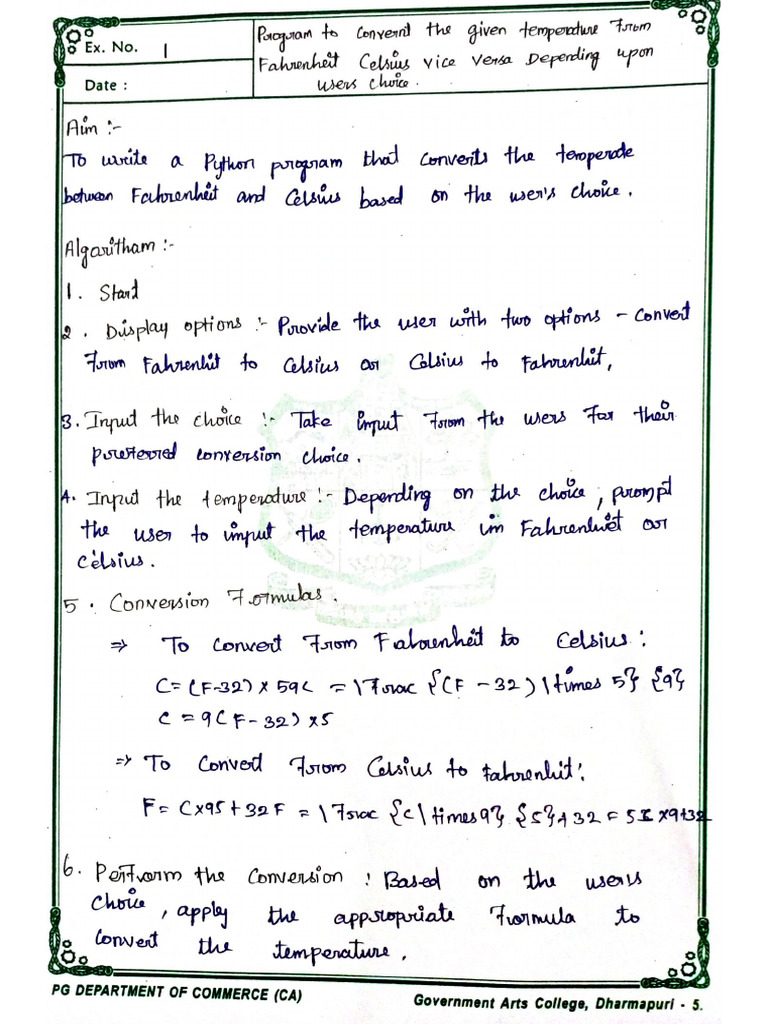 Ex. No. 1
Program to Convernt the given temperature From
Fahrenheit Celsius vice versa Depending upon
users choice.
Date :
Aim :-
To write a Python program that converts the temperade
between Fahrenheit and Celsius based on the user's choice.
Algaritham :-
1. Start
2. Display options :- Provide the user with two options - Convert
From Fahrenhit to Celsius or Celsius to Fahrenhit,
3. Input the choice :- Take input From the users For their
preferred conversion choice.
4. Input the temperature :- Depending on the choice, prompt
the user to input the temperature in Fahrenheit or
Celsius.
5. Conversion Formulas.
⇒ To Convert From Fahrenheit to Celsius :
C = (F-32) × 59C = \Frac {(F - 32) \times 5} {9}
C = 9(F-32) × 5
⇒ To Convert From Celsius to Fahrenhit:
F = C×95+32F = \Frac {C\times9} {5}+32 = 5C×9+32
6. Perform the Conversion : Based on the users
Choice, apply the appropriate Formula to
Convert the temperature.
PG DEPARTMENT OF COMMERCE (CA)
Government Arts College, Dharmapuri - 5.